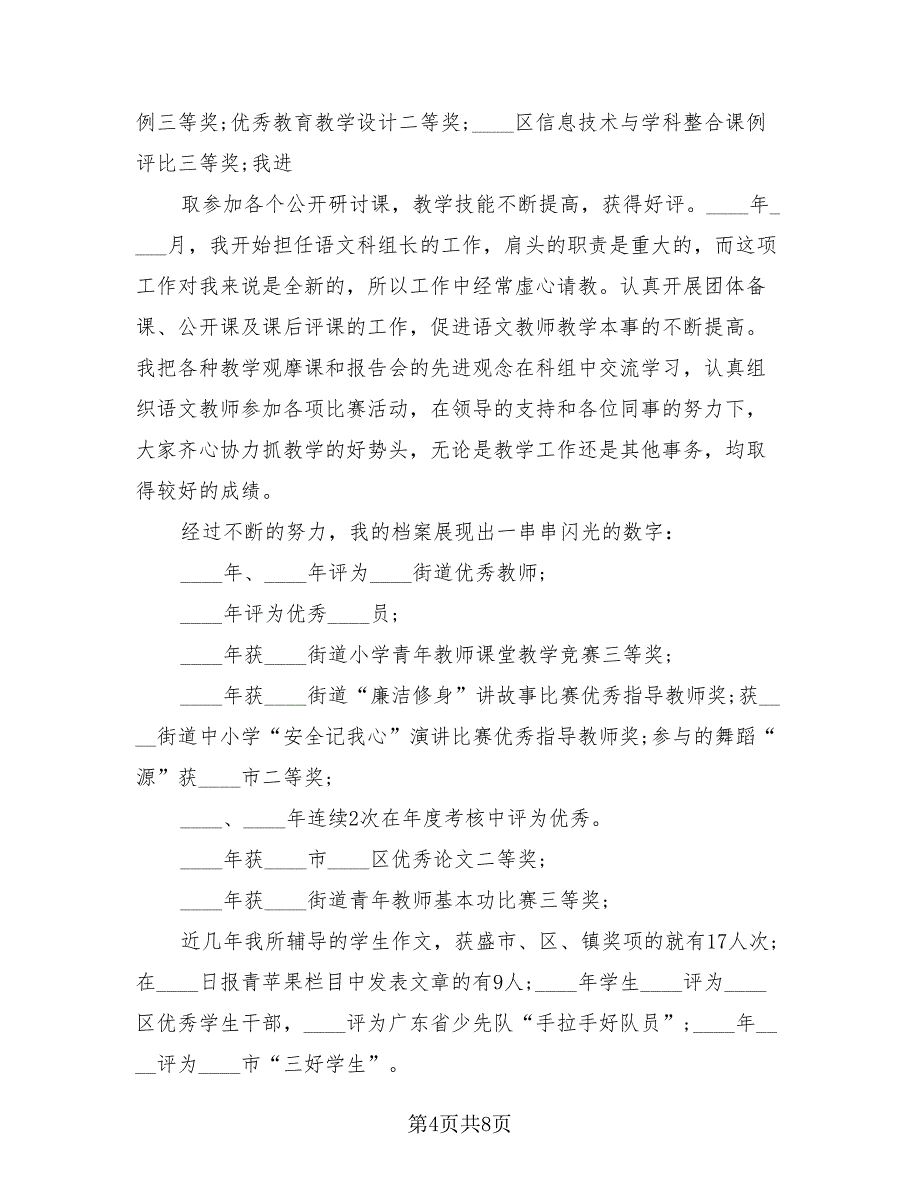 例三等奖;优秀教育教学设计二等奖;____区信息技术与学科整合课例
评比三等奖;我进
取参加各个公开研讨课，教学技能不断提高，获得好评。____年_
___月，我开始担任语文科组长的工作，肩头的职责是重大的，而这项
工作对我来说是全新的，所以工作中经常虚心请教。认真开展团体备
课、公开课及课后评课的工作，促进语文教师教学本事的不断提高。
我把各种教学观摩课和报告会的先进观念在科组中交流学习，认真组
织语文教师参加各项比赛活动，在领导的支持和各位同事的努力下，
大家齐心协力抓教学的好势头，无论是教学工作还是其他事务，均取
得较好的成绩。
经过不断的努力，我的档案展现出一串串闪光的数字：
____年、____年评为____街道优秀教师;
____年评为优秀____员;
____年获____街道小学青年教师课堂教学竞赛三等奖;
____年获____街道“廉洁修身”讲故事比赛优秀指导教师奖;获__
__街道中小学“安全记我心”演讲比赛优秀指导教师奖;参与的舞蹈“
源”获____市二等奖;
____、____年连续2次在年度考核中评为优秀。
____年获____市____区优秀论文二等奖;
____年获____街道青年教师基本功比赛三等奖;
近几年我所辅导的学生作文，获盛市、区、镇奖项的就有17人次;
在____日报青苹果栏目中发表文章的有9人;____年学生____评为____
区优秀学生干部，____评为广东省少先队“手拉手好队员”;____年__
__评为____市“三好学生”。
第4页共8页